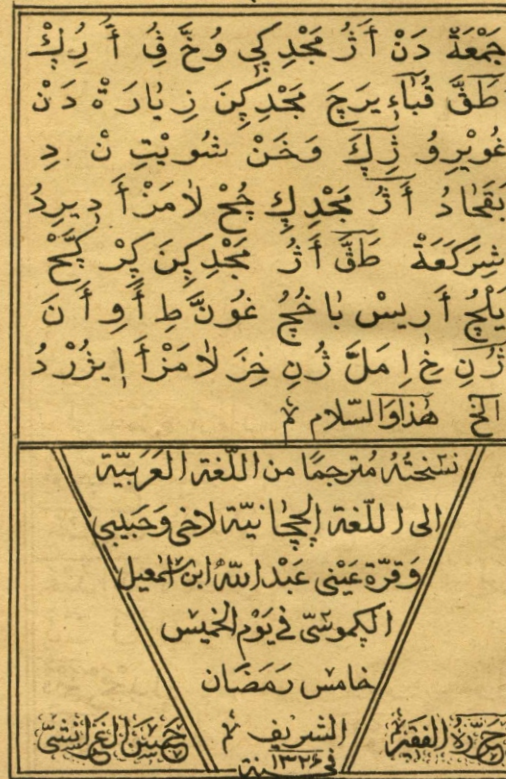 جَمْعَةْ دَنْ أَژُ مَجْدِكِي وُخَّڢُ أَدُكْ
طَڨَّ قُبَاءِيرَچَ مَجْدِكِنَ زِيَارَةْ دَنْ
غُويْرِوُ ژِكَ وَخَنْ شُويْتِ نْ دِ
بَقَحَادُ أَژُ مَجْدِكِ چُحْ لٰامَزْأَدِيرِدُ
شِرَكَعَةْ طَڨَّ أَژُ مَجْدِكِنَ كِرْ كَچَّحْ
يَلْچُ أَرِيسْ بَاخُچُ غُونَّطِ أَوِ أَنَ
ژُنِ خِ اِمَلَّ ژُنِ خِزَ لٰامَزْأَ اِيژُرْدُ
الخ هٰذاوَالسّلام
نسَختُهُ مُترجمًا من اللّغة العَرَبيّة
الى اللّغة الچچَانيّة لاخى وَحَبيبى
وَقرّة عَيْنى عَبْد اللّهْ ابن سَمَعيل
الكموسّى فى يَوْم الخميس
خامس رَمَضَان
الشريف
فى سنة ١٣٢٦
حَرّرَهُ الفقير
حَسَن